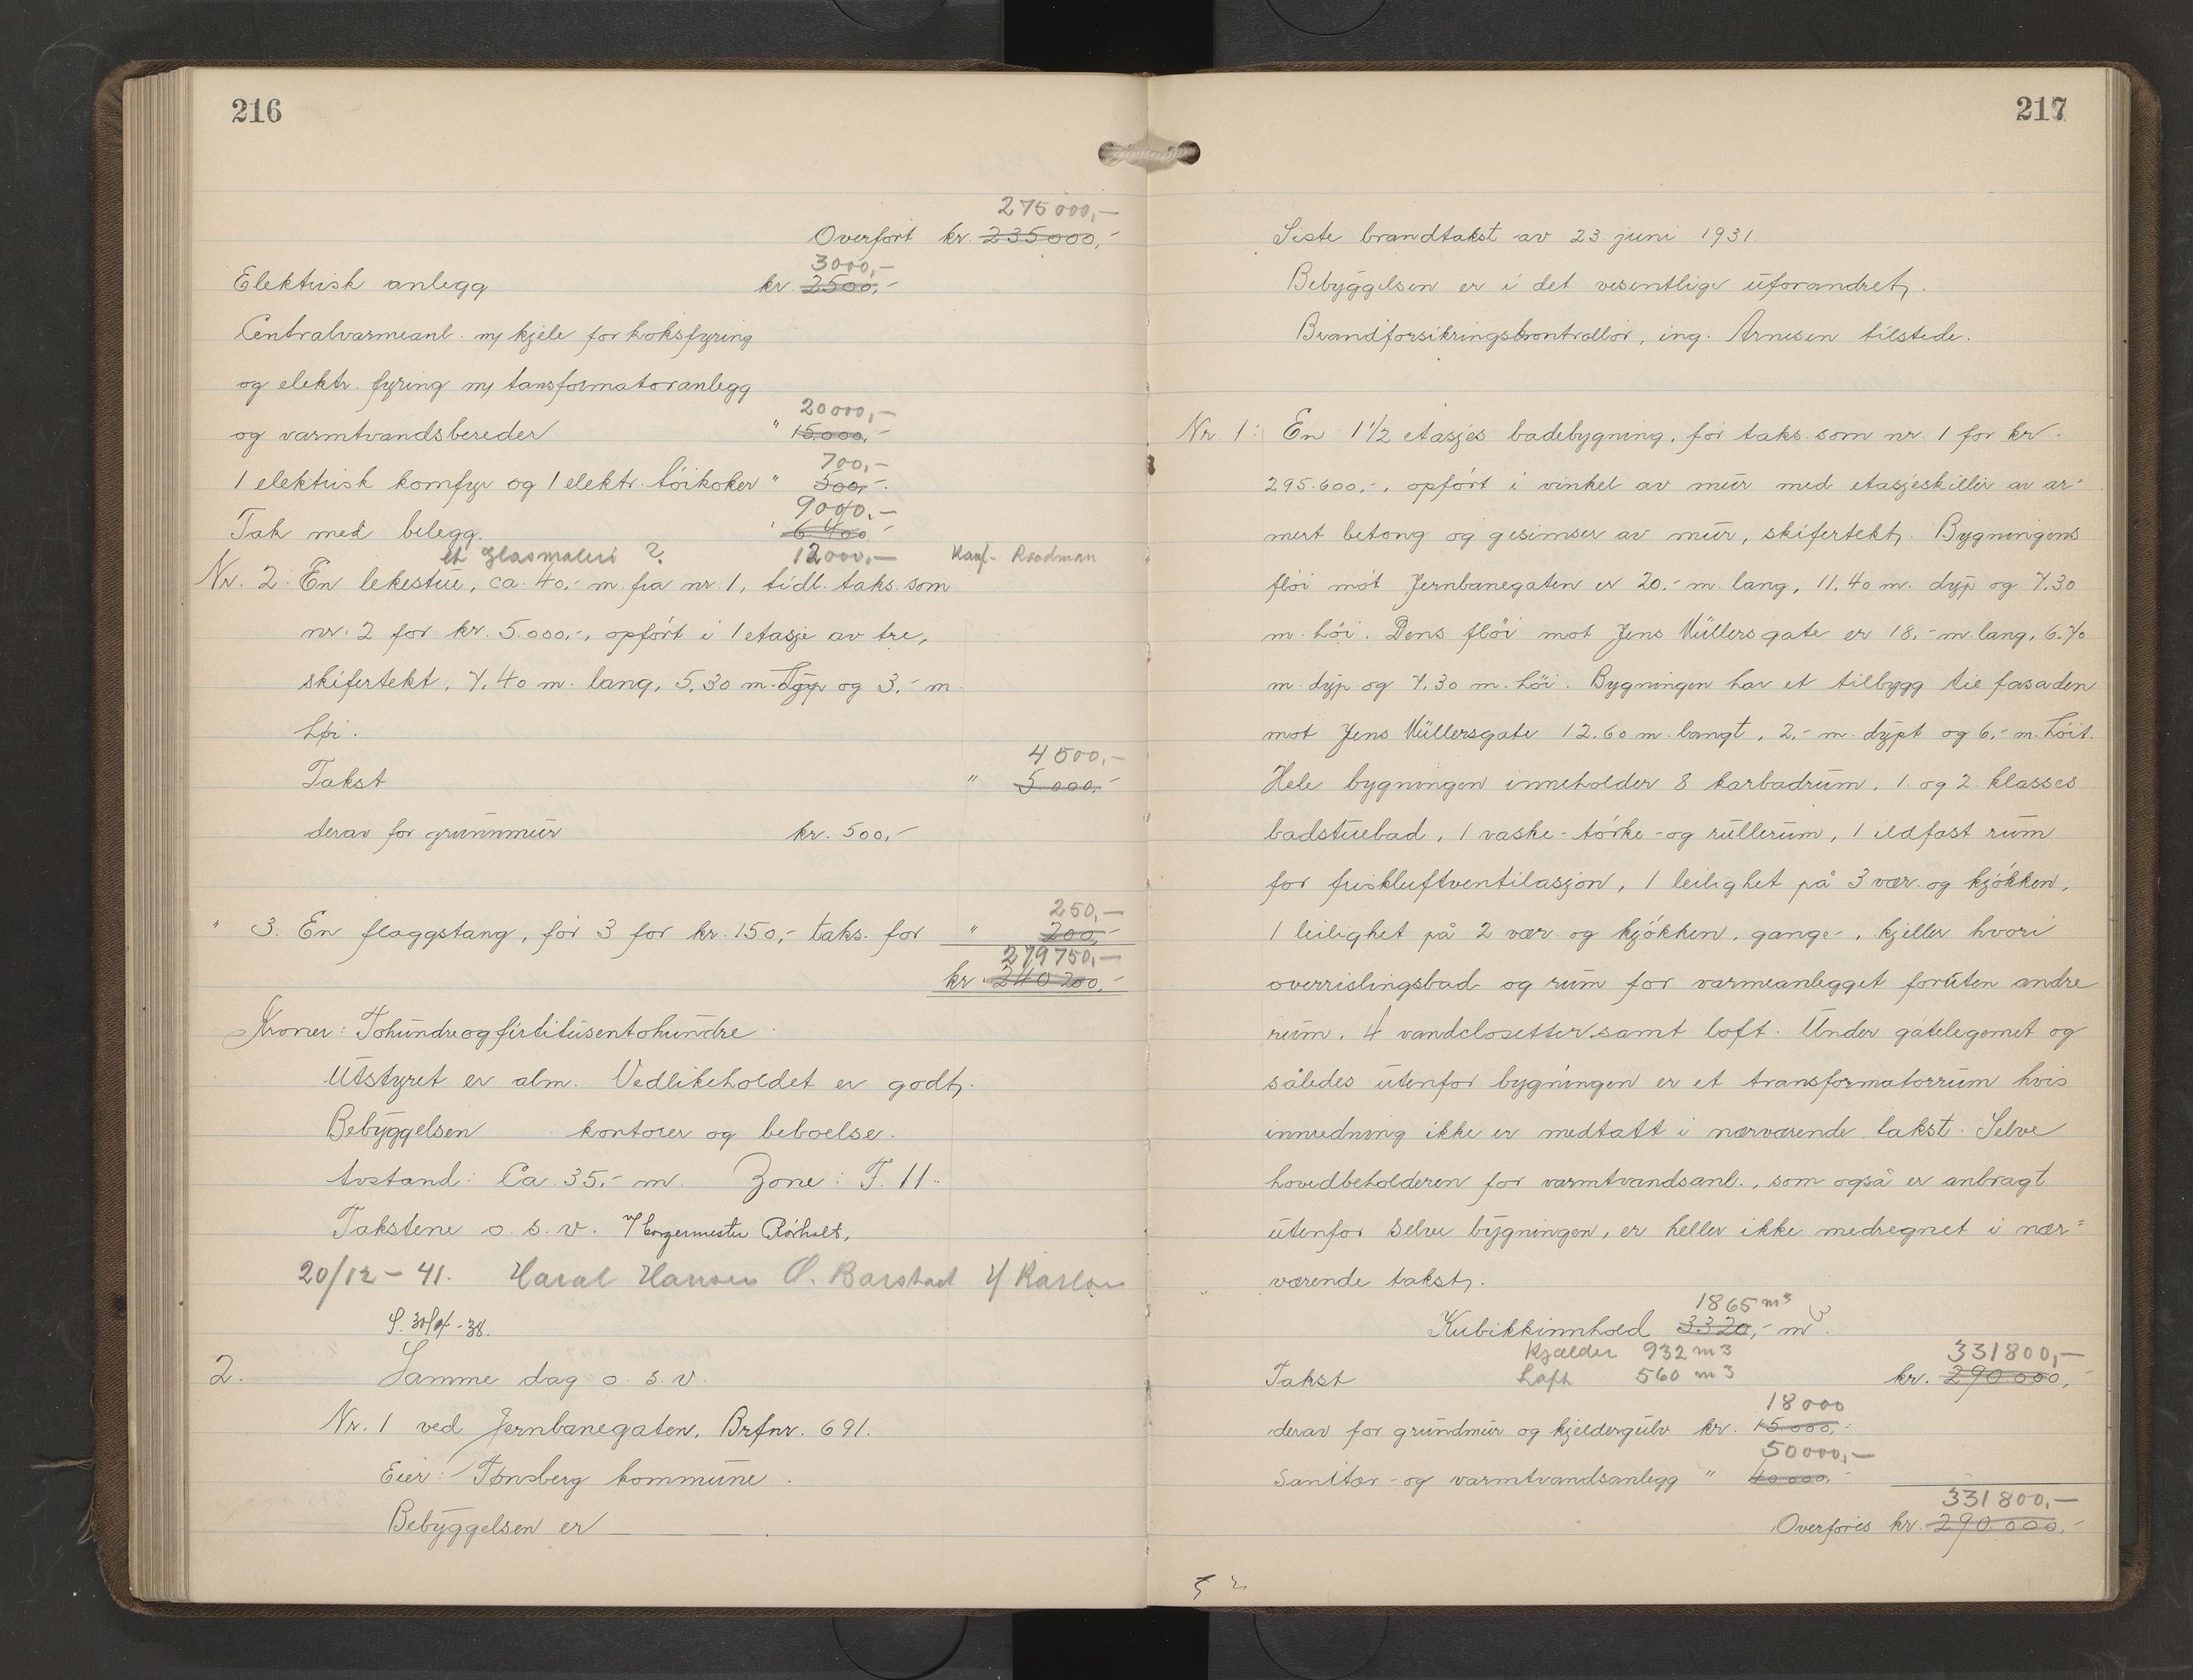 216
275000,-
Overført kr. 235000,-
3000,-
Elektrisk anlegg kr. 2500,-
Centralvarmeanl. m/ kjele for koksfyring
og elektr. fyring m/ tansformatoranlegg
20000,-
og varmtvandsbereder " 15.000,-
700,-
1 elektrisk komfyr og 1 elektr. tøikoker " 500,-
9000,-
Tak med belegg. " 6400
et Glasmaleri ? 12000,-
Nr. 2. En lekestue, ca. 40,- m. fra nr. 1, tidl. taks. som
nr. 2 for kr. 5.000,-, opført i 1 etasje av tre,
skifertekt, 7,40 m. lang, 5,30 m. dyp og 3,- m.
høi.
4500,-
Takst " 5.000,-
derav for grunnmur kr. 500,-
250,-
" 3. En flaggstang, før 3 for kr. 150,- taks. for " 200,-
279750,-
kr. 240200,-
Kroner: Tohundreogførtitusentohundre
Utstyret er alm. Vedlikeholdet er godt.
Bebyggelsen kontorer og beboelse.
Avstand: Ca. 35,- m. Zone: F. 11.
Takstene o. s. v. borgermester Rørholt,
20/12 - 41. Haral Hansen O. Barstad
2. Samme dag o. s. v.
Nr. 1 ved Jernbanegaten, Brfnr. 691.
Eier: Tønsberg kommune.
Bebyggelsen er
217
Siste brandtakst av 23. juni 1931.
Bebyggelsen er i det vesentlige uforandret.
Brandforsikringskontrollør, ing. Arnesen tilstede.
Nr. 1: En 1 1/2 etasjes badebygning, før taks. som nr. 1 for kr.
295.600,-, opført i vinkel av mur med etasjeskiller av ar=
mert betong og gesimser av mur, skifertekt. Bygningens
fløi mot Jernbanegaten er 20,- m. lang, 11,40 m. dyp og 7,30
m. høi. Dens fløi mot Jens Müllers gate er 18,- m. lang, 6,70
m. dyp og 7,30 m. høi. Bygningen har et tilbygg til fasaden
mot Jens Müllersgate 12,60 m. langt, 2,- m. dypt og 6,- m. høit.
Hele bygningen inneholder 8 karbadrum, 1. og 2. klasses
badstuebad, 1 vaske- tørke- og rullerum, 1 ildfast rum
for friskluftventilasjon, 1 leilighet på 3 vær. og kjøkken,
1 leilighet på 2 vær. og kjøkken, gange-, kjeller hvori
overrislingsbad og rum for varmeanlegget foruten andre
rum, 4 vandclosetter samt loft. Under gatelegemet og
således utenfor bygningen er et transformatorrum hvis
innredning ikke er medtatt i nærværende takst. Selve
hovedbeholderen for varmtvandsanl., som også er anbragt
utenfor selve bygningen, er heller ikke medregnet i nær=
værende takst.
1865 m3
Kubikkinnhold 3320,- m3.
Kjælder 932 m3
331800,-
Takst Loft 560 m3 kr. 290.000,-
18000
derav for grundmur og kjeldergulv kr. 15.000,-
50000,-
Sanitær- og varmtvandsanlegg " 40.000,-
331800,-
Overføres kr. 290.000,-